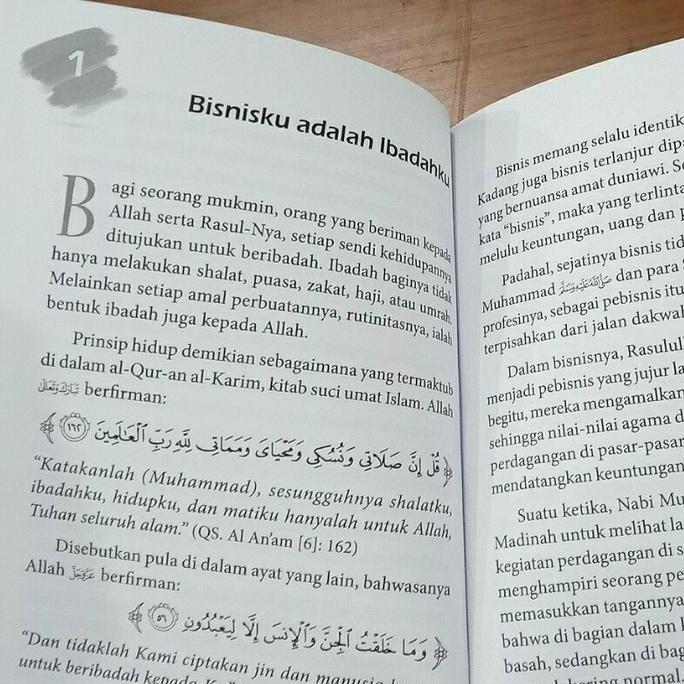 1
Bisnisku adalah Ibadahku
Bagi seorang mukmin, orang yang beriman kepada
Allah serta Rasul-Nya, setiap sendi kehidupannya
ditujukan untuk beribadah. Ibadah baginya tidak
hanya melakukan shalat, puasa, zakat, haji, atau umrah.
Melainkan setiap amal perbuatannya, rutinitasnya, ialah
bentuk ibadah juga kepada Allah.
Prinsip hidup demikian sebagaimana yang termaktub
di dalam al-Qur-an al-Karim, kitab suci umat Islam. Allah
تَبَارَكَ وَتَعَالَى berfirman:
﴿ قُلْ إِنَّ صَلَاتِي وَنُسُكِي وَمَحْيَايَ وَمَمَاتِي لِلَّهِ رَبِّ الْعَالَمِينَ ١٦٢ ﴾
“Katakanlah (Muhammad), sesungguhnya shalatku,
ibadahku, hidupku, dan matiku hanyalah untuk Allah,
Tuhan seluruh alam.” (QS. Al An’am [6]: 162)
Disebutkan pula di dalam ayat yang lain, bahwasanya
Allah عَزَّوَجَلَّ berfirman:
﴿ وَمَا خَلَقْتُ الْجِنَّ وَالْإِنسَ إِلَّا لِيَعْبُدُونِ ٥٦ ﴾
“Dan tidaklah Kami ciptakan jin dan manusia
untuk beribadah kepada
Bisnis memang selalu identik
Kadang juga bisnis terlanjur
yang bernuansa amat duniawi.
kata “bisnis”, maka yang
melulu keuntungan, uang dan
Padahal, sejatinya bisnis
Muhammad ﷺ dan para
profesinya, sebagai pebisnis itu
terpisahkan dari jalan
Dalam bisnisnya,
menjadi pebisnis yang jujur
begitu, mereka mengamalkan
sehingga nilai-nilai agama
perdagangan di pasar-pasar
mendatangkan keuntungan
Suatu ketika, Nabi
Madinah untuk melihat
kegiatan perdagangan di
menghampiri seorang
memasukkan tangannya
bahwa di bagian dalam
basah, sedangkan di
kering normal.